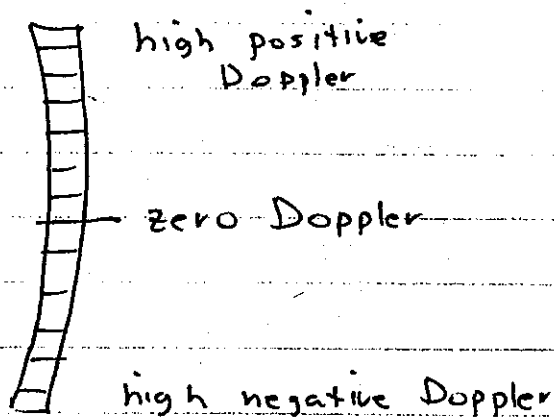 high positive
Doppler
zero Doppler
high negative Doppler